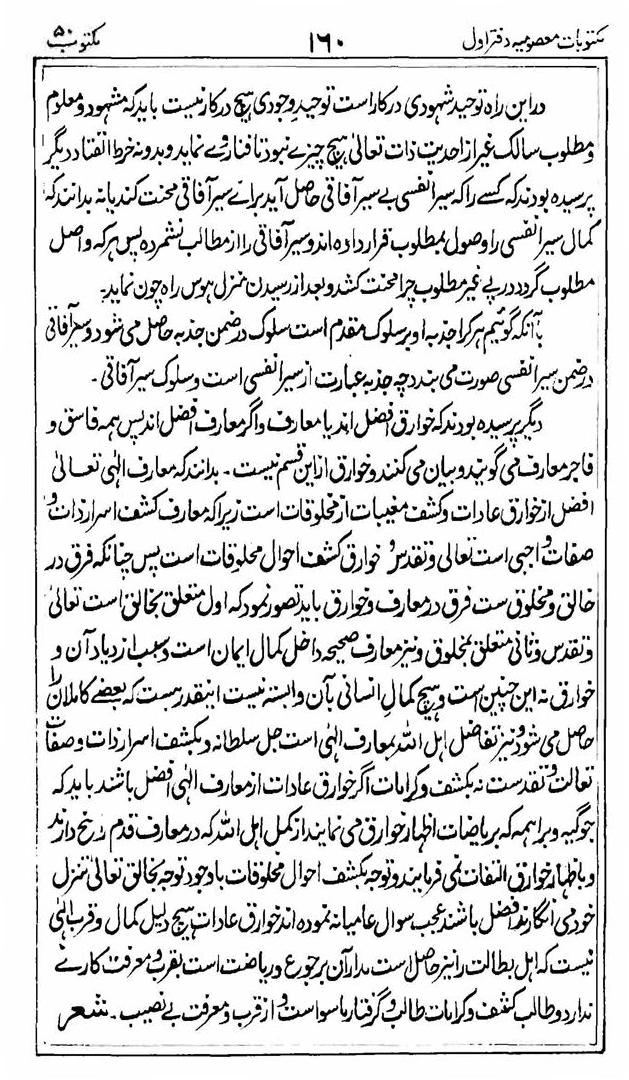 مکتوبات معصومیہ دفتر اول ۱۶۰ مکتوب ۵۰
در این راہ توحید شہودی در کار است توحید وجودی ہیچ در کار نیست باید کہ مشہود و معلوم
و مطلوب سالک غیر از احدیت ذات تعالٰی ہیچ چیزے نبود تا فنا روے نماید و بدونہ خرط القتاد دیگر
پرسیدہ بودند کہ کسے را کہ سیر انفسی بے سیر آفاقی حاصل آید براے سیر آفاقی محنت کند یا نہ بدانند کہ
کمال سیر انفسی را وصول بمطلوب قرار دادہ اند و سیر آفاقی را از مطالب نشمردہ پس ہر کہ واصل
مطلوب گردد در پے غیر مطلوب چرا محنت کشد و بعد از رسیدن منزل ہوس راہ چون نماید۔
با آنکہ گوئیم ہر کرا جذبہ او بر سلوک مقدم است سلوک در ضمن جذبہ حاصل می شود و سیر آفاقی
در ضمن سیر انفسی صورت می بندد چہ جذبہ عبارت از سیر انفسی است و سلوک سیر آفاقی۔
دیگر پرسیدہ بودند کہ خوارق افضل اند یا معارف و اگر معارف افضل اند پس ہمہ فاسق و
فاجر معارف می گویند و بیان می کنند و خوارق ازاین قسم نیست۔ بدانند کہ معارف الٰہی تعالٰی
افضل از خوارق عادات و کشف مغیبات از مخلوقات است زیرا کہ معارف کشف اسرار ذات و
صفات واجبی است تعالٰی و تقدس و خوارق کشف احوال مخلوقات است پس چنانکہ فرق در
خالق و مخلوق ست فرق در معارف و خوارق باید تصور نمود کہ اول متعلق بخالق است تعالٰی
و تقدس و ثانی متعلق بمخلوق و نیز معارف صحیحہ داخل کمال ایمان است و سبب ازدیاد آن و
خوارق نہ این چنین است و ہیچ کمالِ انسانی بآن وابستہ نیست اینقدر ہست کہ بعضے کاملان را
حاصل می شود و نیز تفاضل اہل اللہ بمعارف الٰہی است جل سلطانہ و بکشف اسرار ذات و صفات
تعالت و تقدست نہ بکشف و کرامات اگر خوارق عادات از معارف الٰہی افضل باشند باید کہ
جوگیہ و براہمہ کہ بریاضات اظہار خوارق می نمایند از کمل اہل اللہ کہ در معارف قدم راسخ دارند
و باظہار خوارق التفات نمی فرمایند و توجہ بکشف احوال مخلوقات باوجود توجہ بخالق تعالٰی تنزل
خود می انگارند افضل باشند عجب سوال عامیانہ نمودہ اند خوارق عادات ہیچ دلیل کمال و قرب الٰہی
نیست کہ اہل بطالت را نیز حاصل است مدار آن بر جوع و ریاضت است بقرب و معرفت کارے
ندارد و طالب کشف و کرامات طالب و گرفتار ماسوا است و از قرب و معرفت بے نصیب۔ شعر